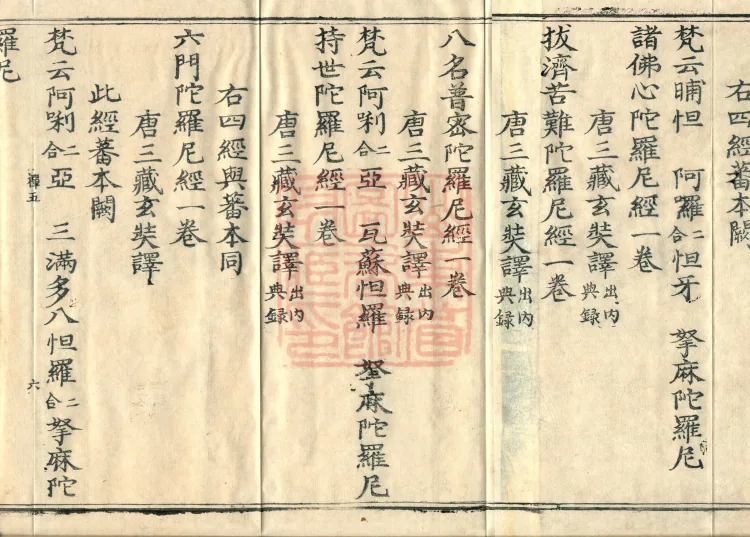 右四經蕃本闕
梵云晡怛 阿羅二合怛牙 拏麻陀羅尼
諸佛心陀羅尼經一卷
唐三藏玄奘譯出內典録
拔濟苦難陀羅尼經一卷
唐三藏玄奘譯出內典録
八名普密陀羅尼經一卷
唐三藏玄奘譯出內典録
梵云阿唎二合亞 瓦蘇怛羅 拏麻陀羅尼
持世陀羅尼經一卷
唐三藏玄奘譯出內典録
右四經與蕃本同
六門陀羅尼經一卷
唐三藏玄奘譯
此經蕃本闕
梵云阿唎二合亞 三滿多八怛羅二合拏麻陀
羅尼
六